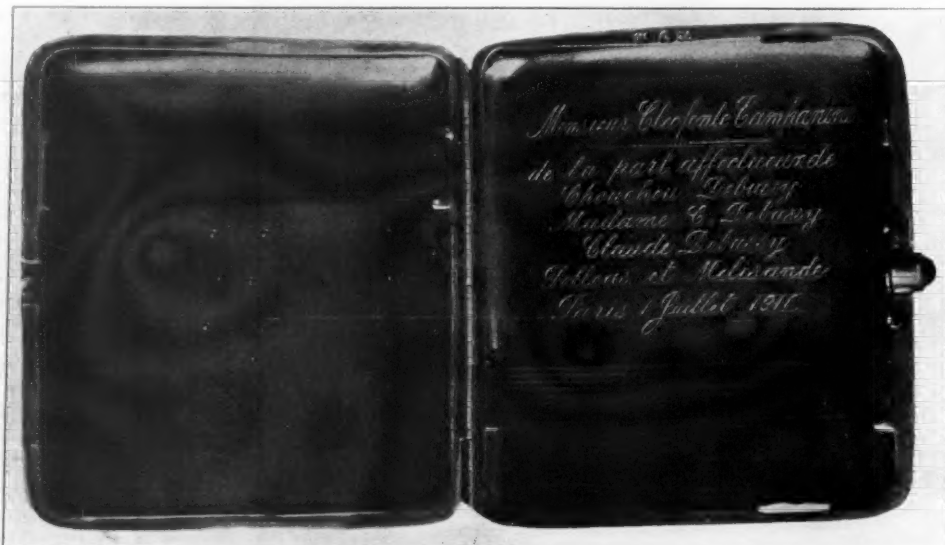 Monsieur Cleofonte Campanini
de la part affectueux de
Chouchou Debussy
Madame C. Debussy
Claude Debussy
Pelleas et Melisande
Paris 1 Juillet